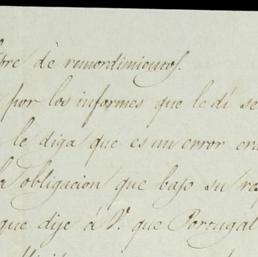 bre de remordimientos.
por los informes que le di se
le diga que es un error
a obligacion que bajo su
que dije á V. que Portugal